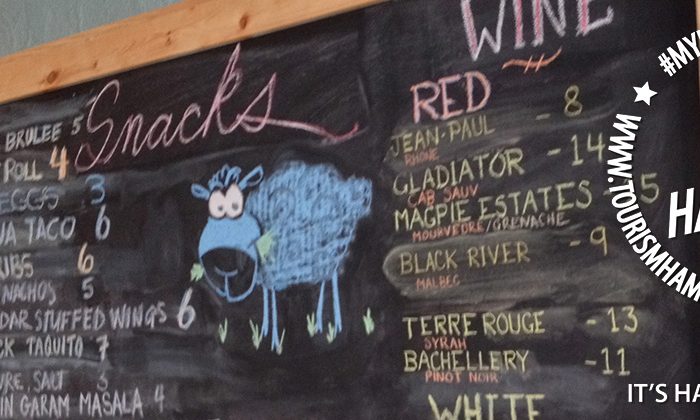 Snacks
BRULEE 5
ROLL 4
EGGS 3
TACO 6
6
NACHOS 5
STUFFED WINGS 6
TAQUITO 7
SALT 3
GARAM MASALA 4
WINE
RED
JEAN-PAUL - 8
RHONE
GLADIATOR - 14
CAB SAUV
MAGPIE ESTATES - 5
MOURVEDRE/GRENACHE
BLACK RIVER - 9
MALBEC
TERRE ROUGE - 13
SYRAH
BACHELLERY - 11
PINOT NOIR
WHITE
#MY
WWW.TOURISMHAM
HA
IT'S HA